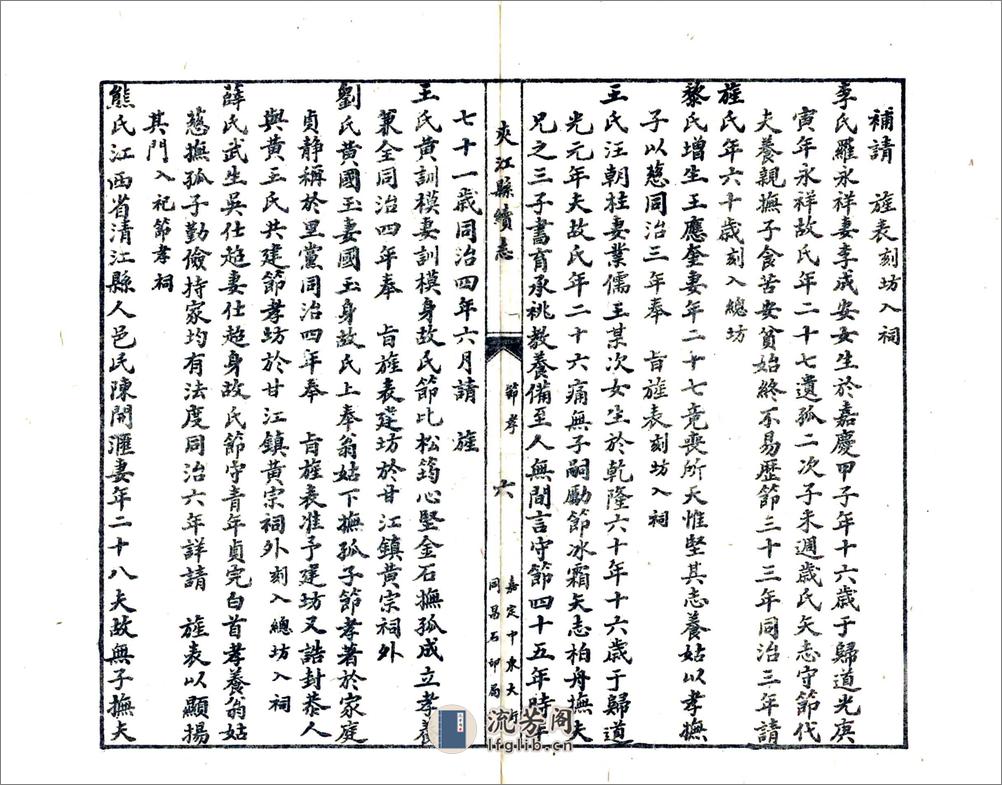 補請　旌表刻坊入祠
李氏羅永祥妻李成安女生於嘉慶甲子年十六歲于歸道光庚
寅年永祥故氏年二十七遺孤二次子未週歲氏矢志守節代
夫養親撫子食苦安貧始終不易歷節三十三年同治三年請
旌氏年六十歲刻入總坊
黎氏增生王應奎妻年二十七竟喪所天惟堅其志養姑以孝撫
子以慈同治三年奉　旨旌表刻坊入祠
王氏汪朝柱妻業儒王某次女生於乾隆六十年十六歲于歸道
光元年夫故氏年二十六痛無子嗣勵節冰霜矢志柏舟撫夫
兄之三子書育承祧教養備至人無間言守節四十五年時年
夾江縣續志
節孝
六
嘉定中東大街
同昌石印局
七十一歲同治四年六月請　旌
王氏黃訓模妻訓模身故氏節比松筠心堅金石撫孤成立孝養
兼全同治四年奉　旨旌表建坊於甘江鎮黃宗祠外
劉氏黃國玉妻國玉身故氏上奉翁姑下撫孤子節孝著於家庭
貞靜稱於里黨同治四年奉　旨旌表准予建坊又誥封恭人
與黃王氏共建節孝坊於甘江鎮黃宗祠外刻入總坊入祠
薛氏武生吳仕超妻仕超身故氏節守青年貞完白首孝養翁姑
慈撫孤子勤儉持家均有法度同治六年詳請　旌表以顯揚
其門入祀節孝祠
熊氏江西省清江縣人邑民陳開滙妻年二十八夫故無子撫夫
流芳阁
lfglib.cn